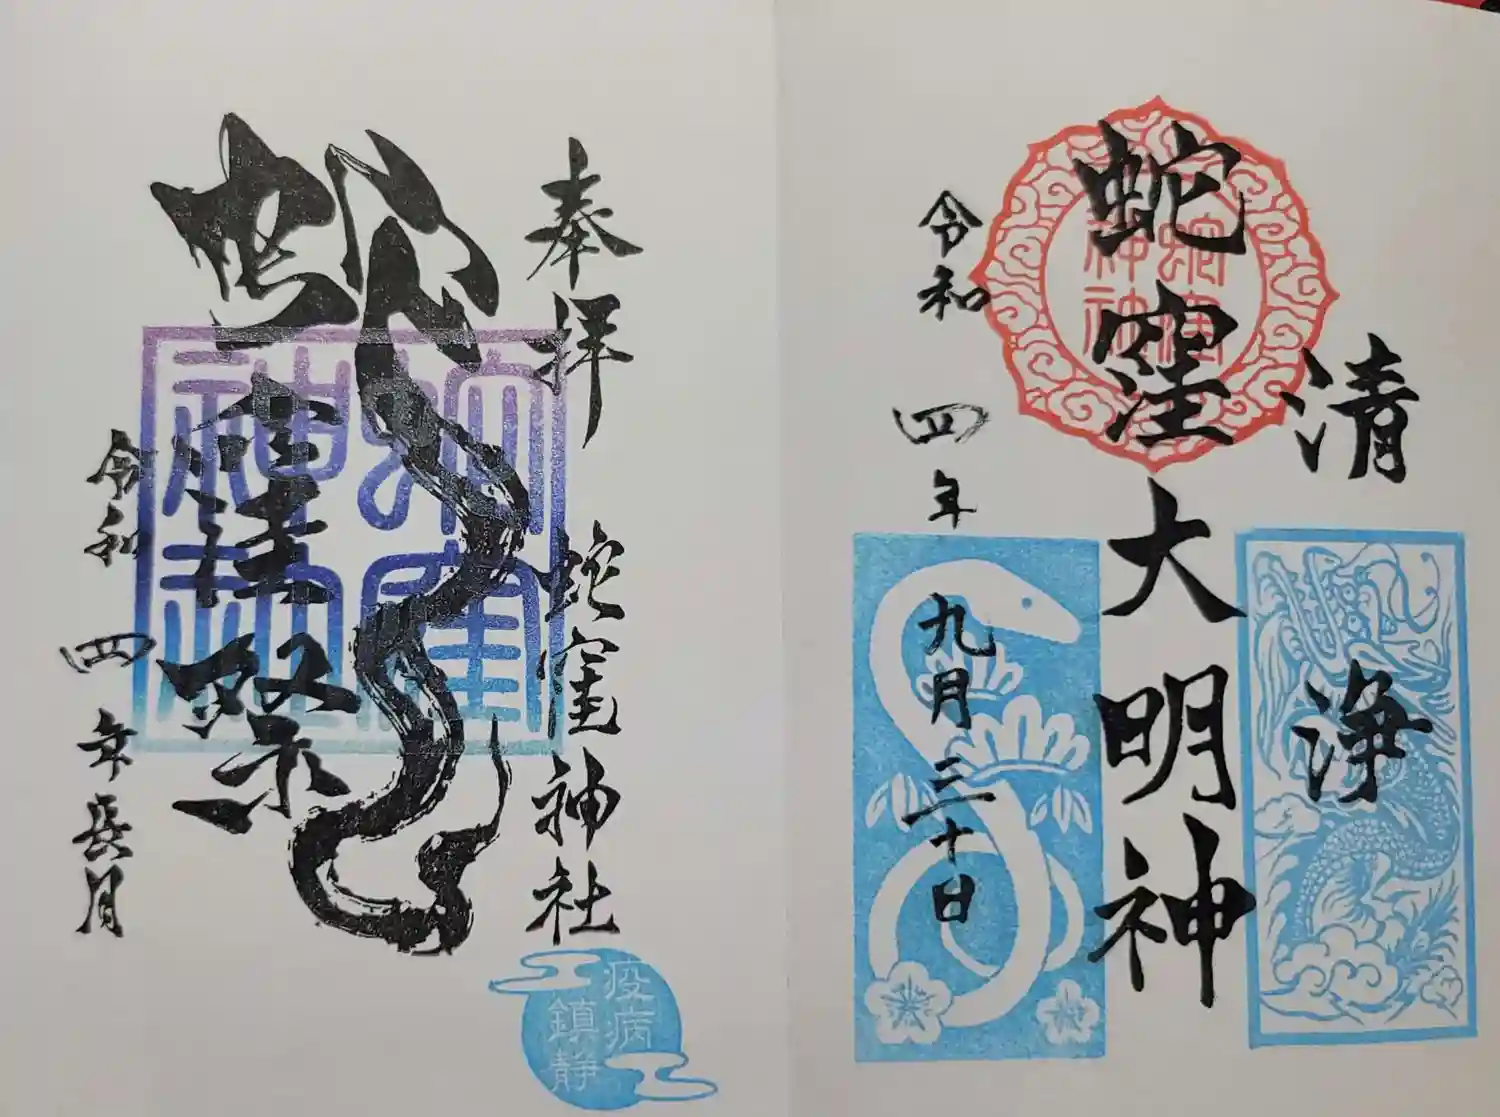 清浄
蛇窪大明神
蛇窪
神社
令和四年九月三十日
奉拝 蛇窪神社
疫病
鎮静
蛇窪
神社
令和四年長月